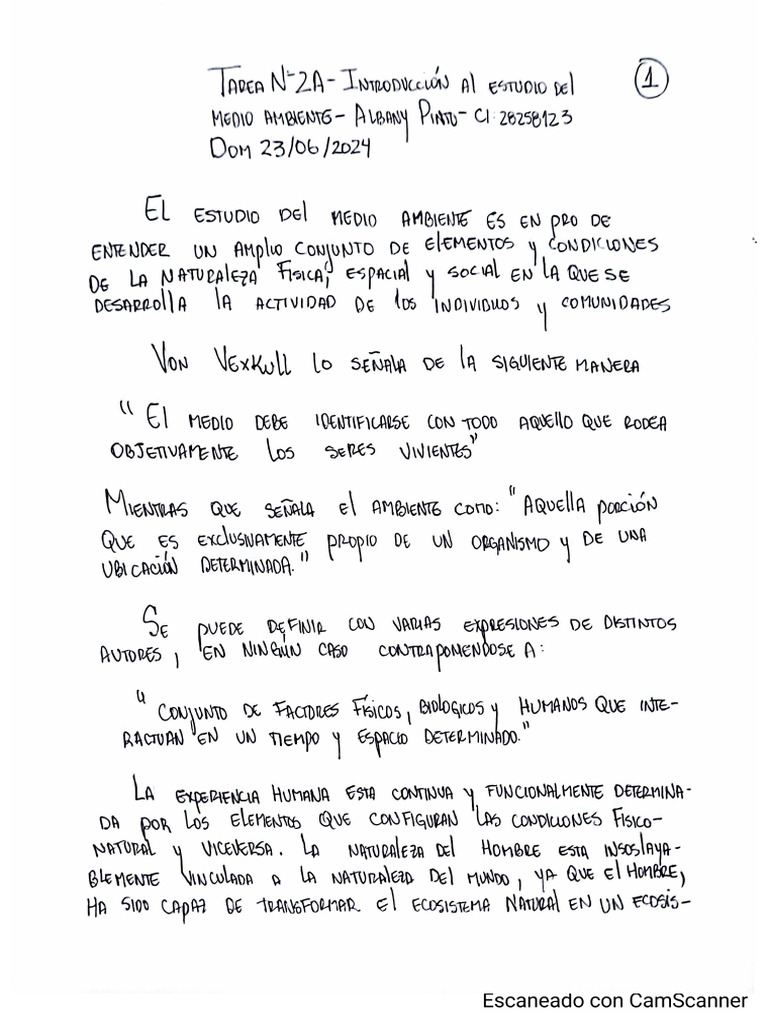 TAREA Nº2A - INTRODUCCIÓN AL ESTUDIO DEL
1
MEDIO AMBIENTE - ALBANY PINTO - CI: 28258123
DOM 23/06/2024
EL ESTUDIO DEL MEDIO AMBIENTE ES EN PRO DE
ENTENDER UN AMPLIO CONJUNTO DE ELEMENTOS Y CONDICIONES
DE LA NATURALEZA FISICA, ESPACIAL Y SOCIAL EN LA QUE SE
DESARROLLA LA ACTIVIDAD DE LOS INDIVIDUOS Y COMUNIDADES
VON VEXKULL LO SEÑALA DE LA SIGUIENTE MANERA
"EL MEDIO DEBE IDENTIFICARSE CON TODO AQUELLO QUE RODEA
OBJETIVAMENTE LOS SERES VIVIENTES"
MIENTRAS QUE SEÑALA EL AMBIENTE COMO: "AQUELLA PORCIÓN
QUE ES EXCLUSIVAMENTE PROPIO DE UN ORGANISMO Y DE UNA
UBICACIÓN DETERMINADA."
SE PUEDE DEFINIR CON VARIAS EXPRESIONES DE DISTINTOS
AUTORES, EN NINGÚN CASO CONTRAPONIENDOSE A:
"CONJUNTO DE FACTORES FÍSICOS, BIOLOGICOS Y HUMANOS QUE INTE-
RACTUAN EN UN TIEMPO Y ESPACIO DETERMINADO."
LA EXPERIENCIA HUMANA ESTA CONTINUA Y FUNCIONALMENTE DETERMINA-
DA POR LOS ELEMENTOS QUE CONFIGURAN LAS CONDICIONES FISICO-
NATURAL Y VICEVERSA. LA NATURALEZA DEL HOMBRE ESTA INSOSLAYA-
BLEMENTE VINCULADA A LA NATURALEZA DEL MUNDO, YA QUE EL HOMBRE,
HA SIDO CAPAZ DE TRANSFORMAR EL ECOSISTEMA NATURAL EN UN ECOSIS-
Escaneado con CamScanner